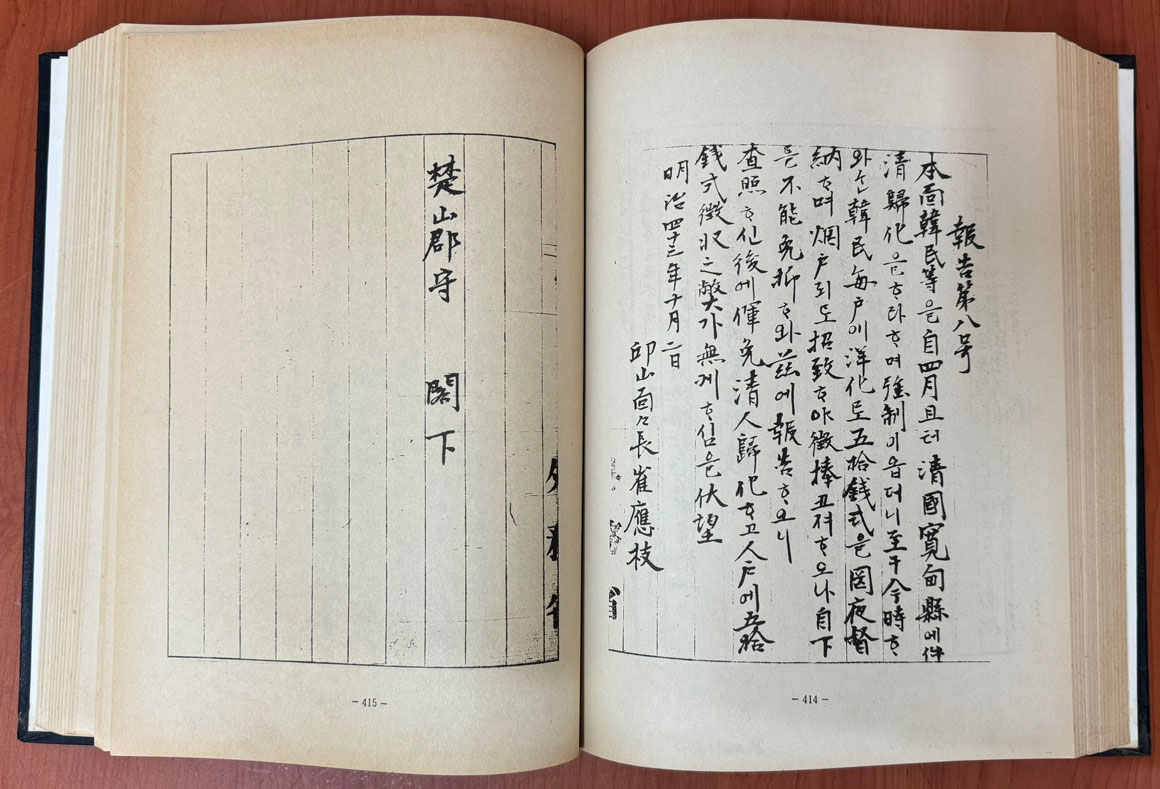 報告第八号
本面韓民等은自四月且터清國寬甸縣에件
清歸化을ᄒᆞ라ᄒᆞ며強制이읍더니至于今時ᄒᆞ
와ᄂᆞᆫ韓民每戶에洋化로五拾錢式을罔夜督
納ᄒᆞ며烟戶되도招致ᄒᆞ야徵捧코져ᄒᆞ오나自下
로不能免抑ᄒᆞ와茲에報告ᄒᆞ오니
查照ᄒᆞ신後에俾免清人歸化ᄒᆞ고人戶에五拾
錢式徵收之弊가無케ᄒᆞ심을伏望
明治四十三年十月二日
邱山面々長崔應枝
- 414 -
楚山郡守 閣下
- 415 -